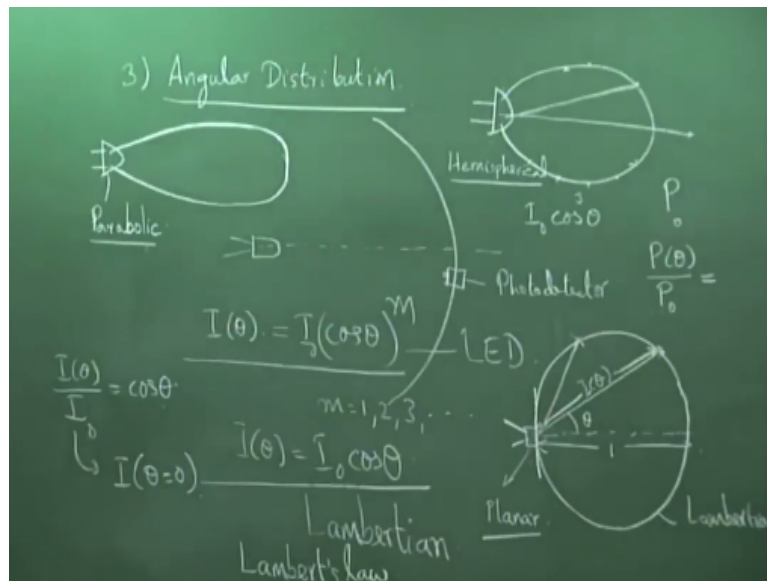 3) Angular Distribution.
Parabolic
Hemispherical
I₀ cos³θ
P₀
P(θ)/P₀ =
Photodetector
I(θ) = I₀(cosθ)^m
LED
m=1,2,3, ....
I(θ)/I₀ = cosθ
I(θ=0)
I(θ) = I₀ cosθ
Lambertian
Lambert's law
I(θ)
θ
1
Planar